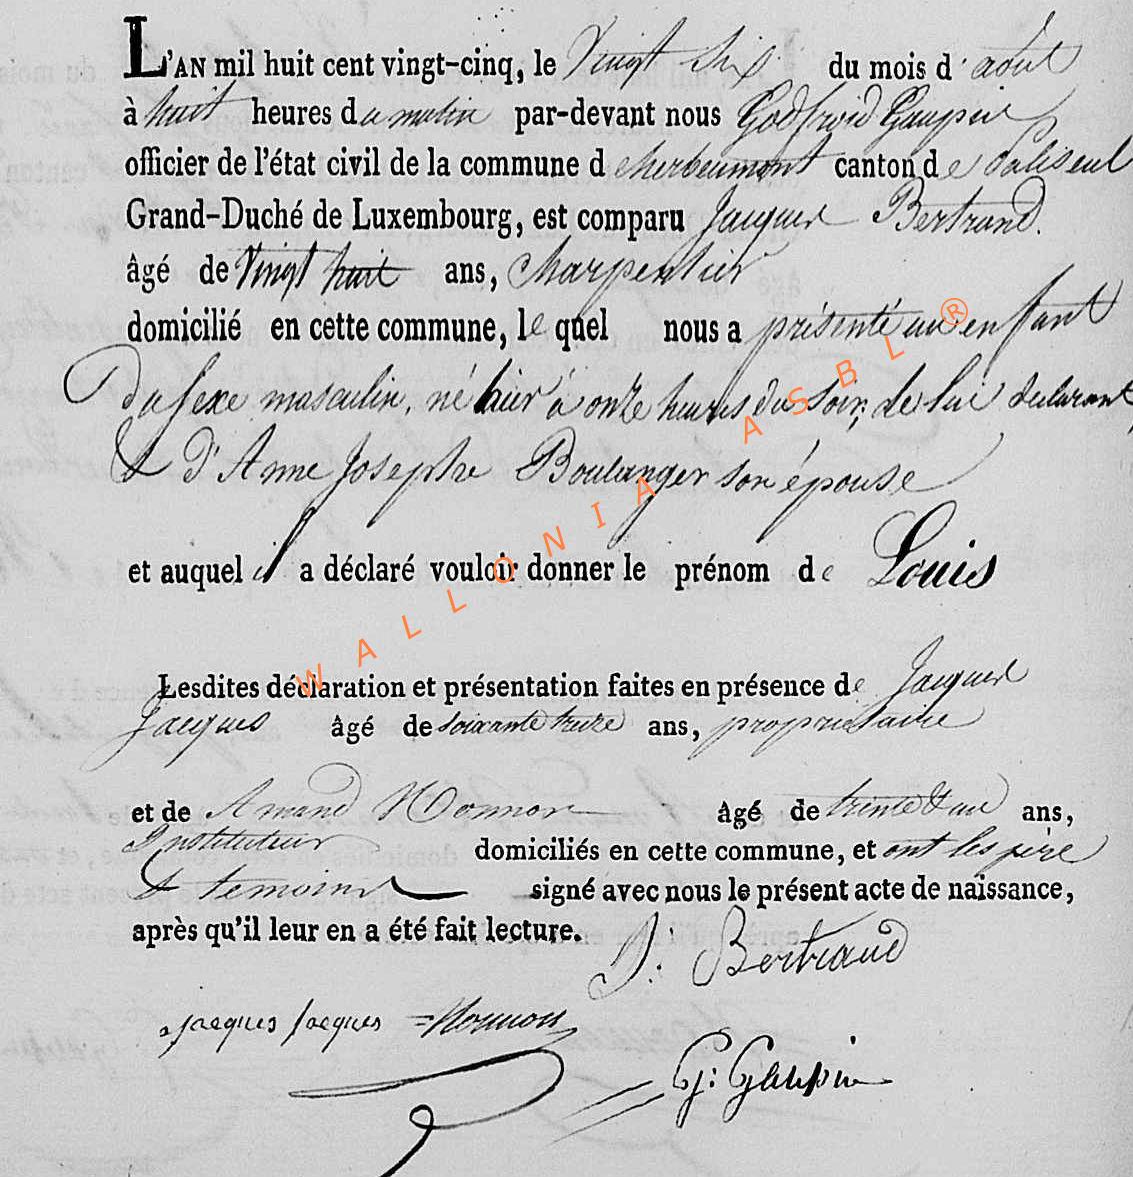 L'AN mil huit cent vingt-cinq, le Vingt six du mois d'août
à huit heures du matin par-devant nous Godfroid Gaupin
officier de l'état civil de la commune d'herbeumont canton de Paliseul
Grand-Duché de Luxembourg, est comparu Jacques Bertrand.
âgé de Vingt huit ans, charpentier
domicilié en cette commune, lequel nous a présenté un enfant
Du sexe masculin, né hier à onze heures du soir, de lui declarant
& d'Anne Josephe Boulanger son épouse
et auquel il a déclaré vouloir donner le prénom de Louis
Lesdites déclaration et présentation faites en présence de Jacques
Jacques âgé de soixante treize ans, propriétaire
et de Amand Monnon âgé de trente & un ans,
Instituteur domiciliés en cette commune, et ont les père
& temoins signé avec nous le présent acte de naissance,
après qu'il leur en a été fait lecture. J: Bertrand
Jacques Jacques Monnon
G: Gaupin
WALLONIA ASBL ®